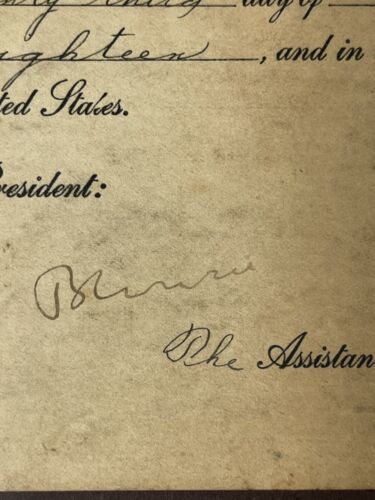 day of
ighteen, and in
ted States.
resident:
The Assistan